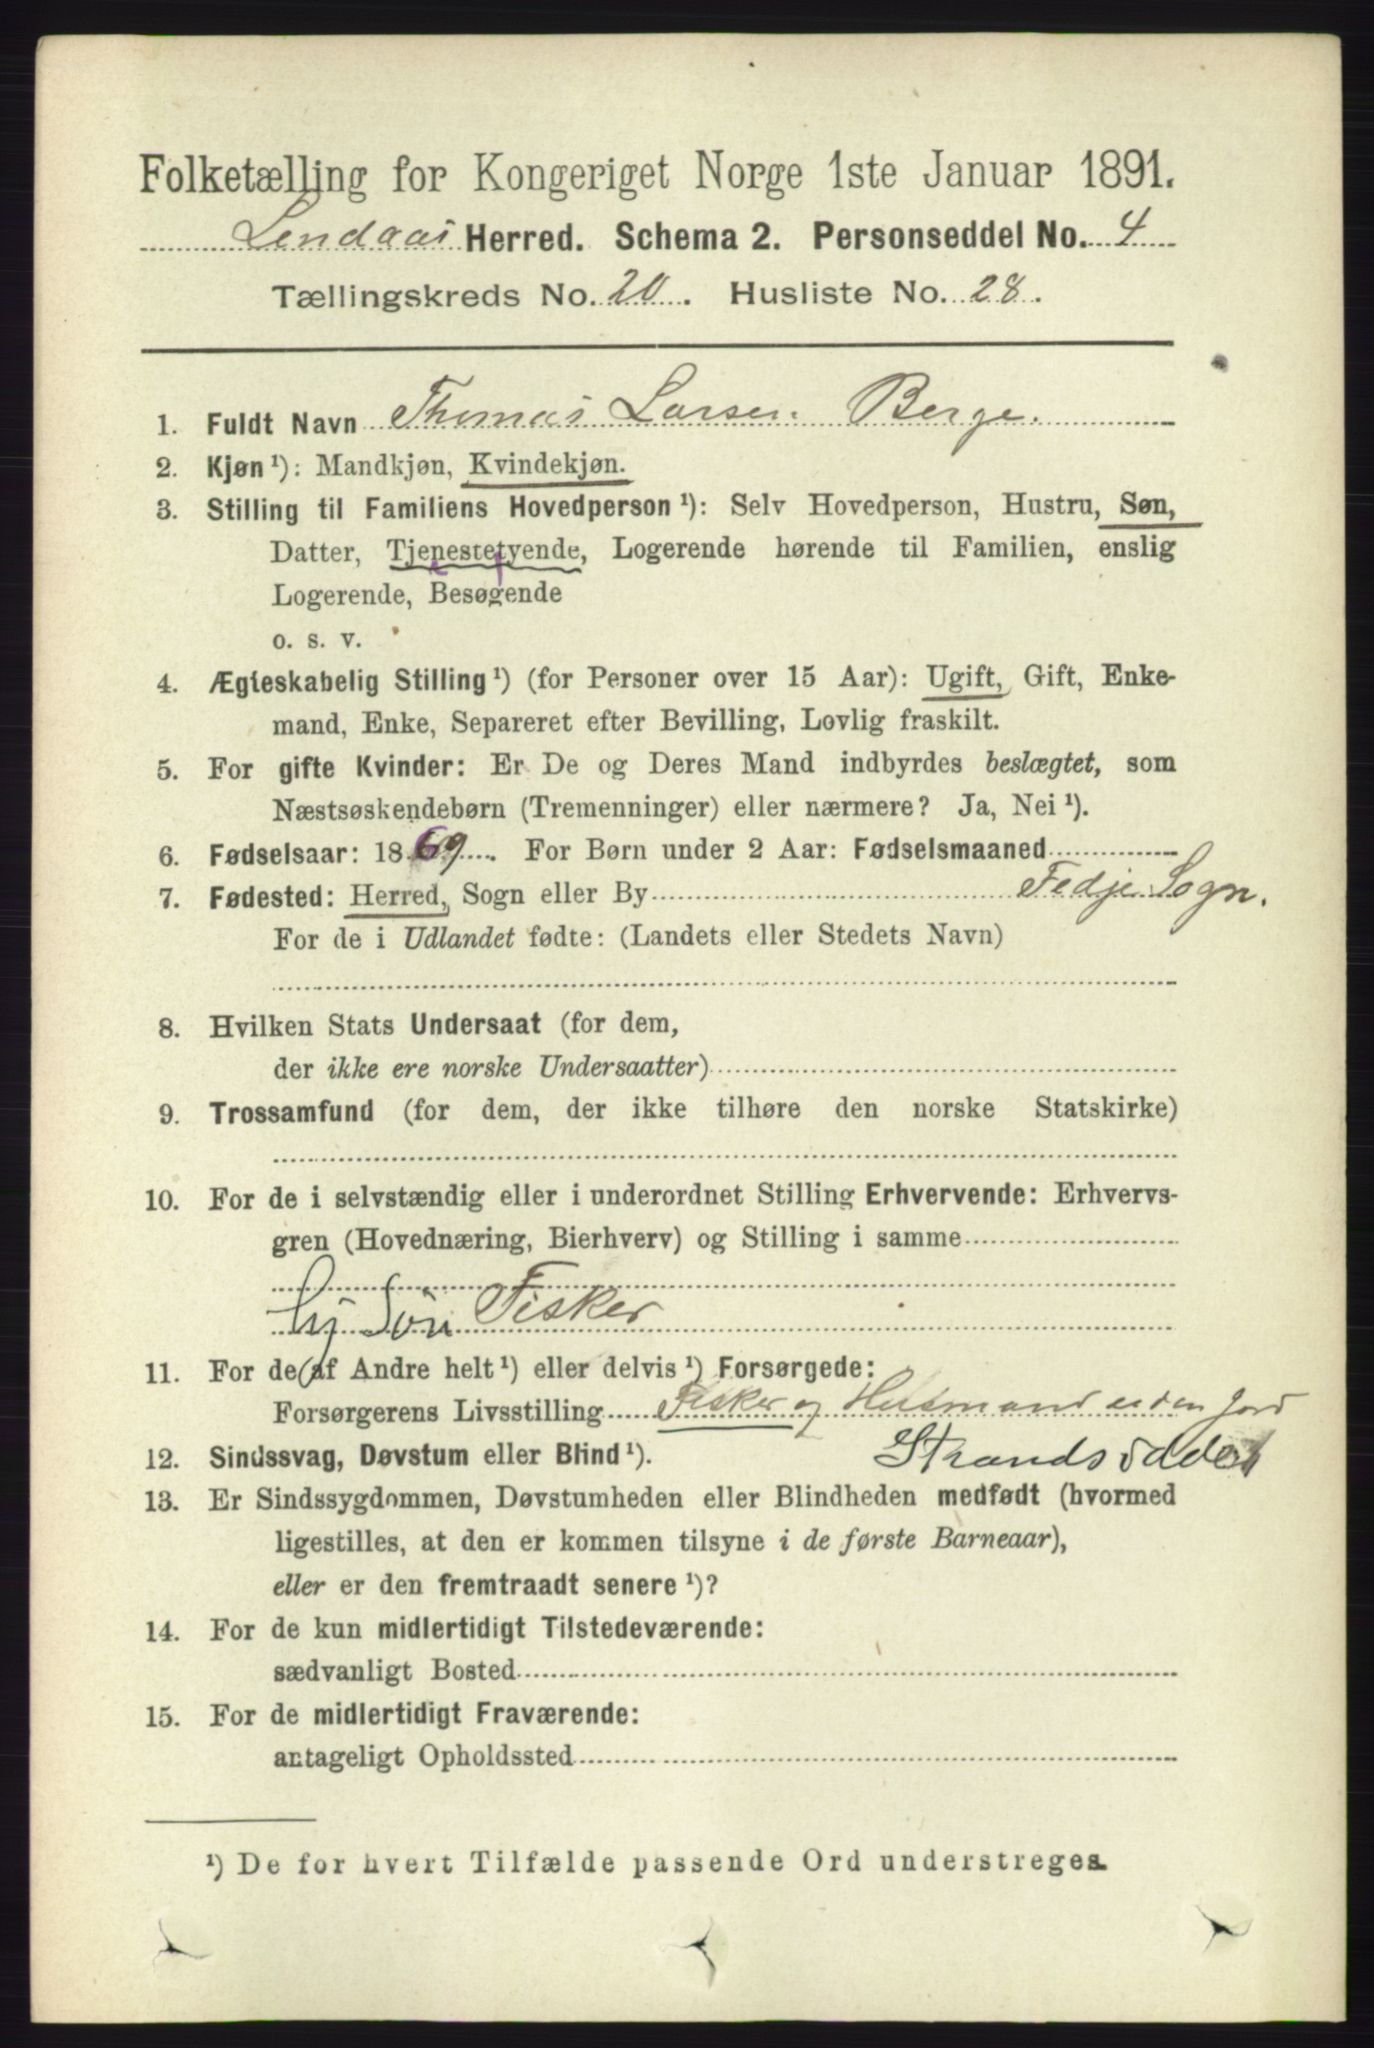 Folketælling for Kongeriget Norge 1ste Januar 1891.
Lindaas Herred. Schema 2. Personseddel No. 4
Tællingskreds No. 20. Husliste No. 28.
1. Fuldt Navn Thomas Larsen Berge.
2. Kjøn ¹): Mandkjøn, Kvindekjøn.
3. Stilling til Familiens Hovedperson ¹): Selv Hovedperson, Hustru, Søn,
Datter, Tjenestetyende, Logerende hørende til Familien, enslig
Logerende, Besøgende
o. s. v.
4. Ægteskabelig Stilling ¹) (for Personer over 15 Aar): Ugift, Gift, Enke-
mand, Enke, Separeret efter Bevilling, Lovlig fraskilt.
5. For gifte Kvinder: Er De og Deres Mand indbyrdes beslægtet, som
Næstsøskendebørn (Tremenninger) eller nærmere? Ja, Nei ¹).
6. Fødselsaar: 1869. For Børn under 2 Aar: Fødselsmaaned
7. Fødested: Herred, Sogn eller By Fedje Sogn.
For de i Udlandet fødte: (Landets eller Stedets Navn)
8. Hvilken Stats Undersaat (for dem,
der ikke ere norske Undersaatter)
9. Trossamfund (for dem, der ikke tilhøre den norske Statskirke)
10. For de i selvstændig eller i underordnet Stilling Erhvervende: Erhvervs-
gren (Hovednæring, Bierhverv) og Stilling i samme
Søn Fisker
11. For de af Andre helt ¹) eller delvis ¹) Forsørgede:
Forsørgerens Livsstilling Fisker og Husmand uden Jord
12. Sindssvag, Døvstum eller Blind ¹). Strandsidder
13. Er Sindssygdommen, Døvstumheden eller Blindheden medfødt (hvormed
ligestilles, at den er kommen tilsyne i de første Barneaar),
eller er den fremtraadt senere ¹)?
14. For de kun midlertidigt Tilstedeværende:
sædvanligt Bosted
15. For de midlertidigt Fraværende:
antageligt Opholdssted
¹) De for hvert Tilfælde passende Ord understreges.